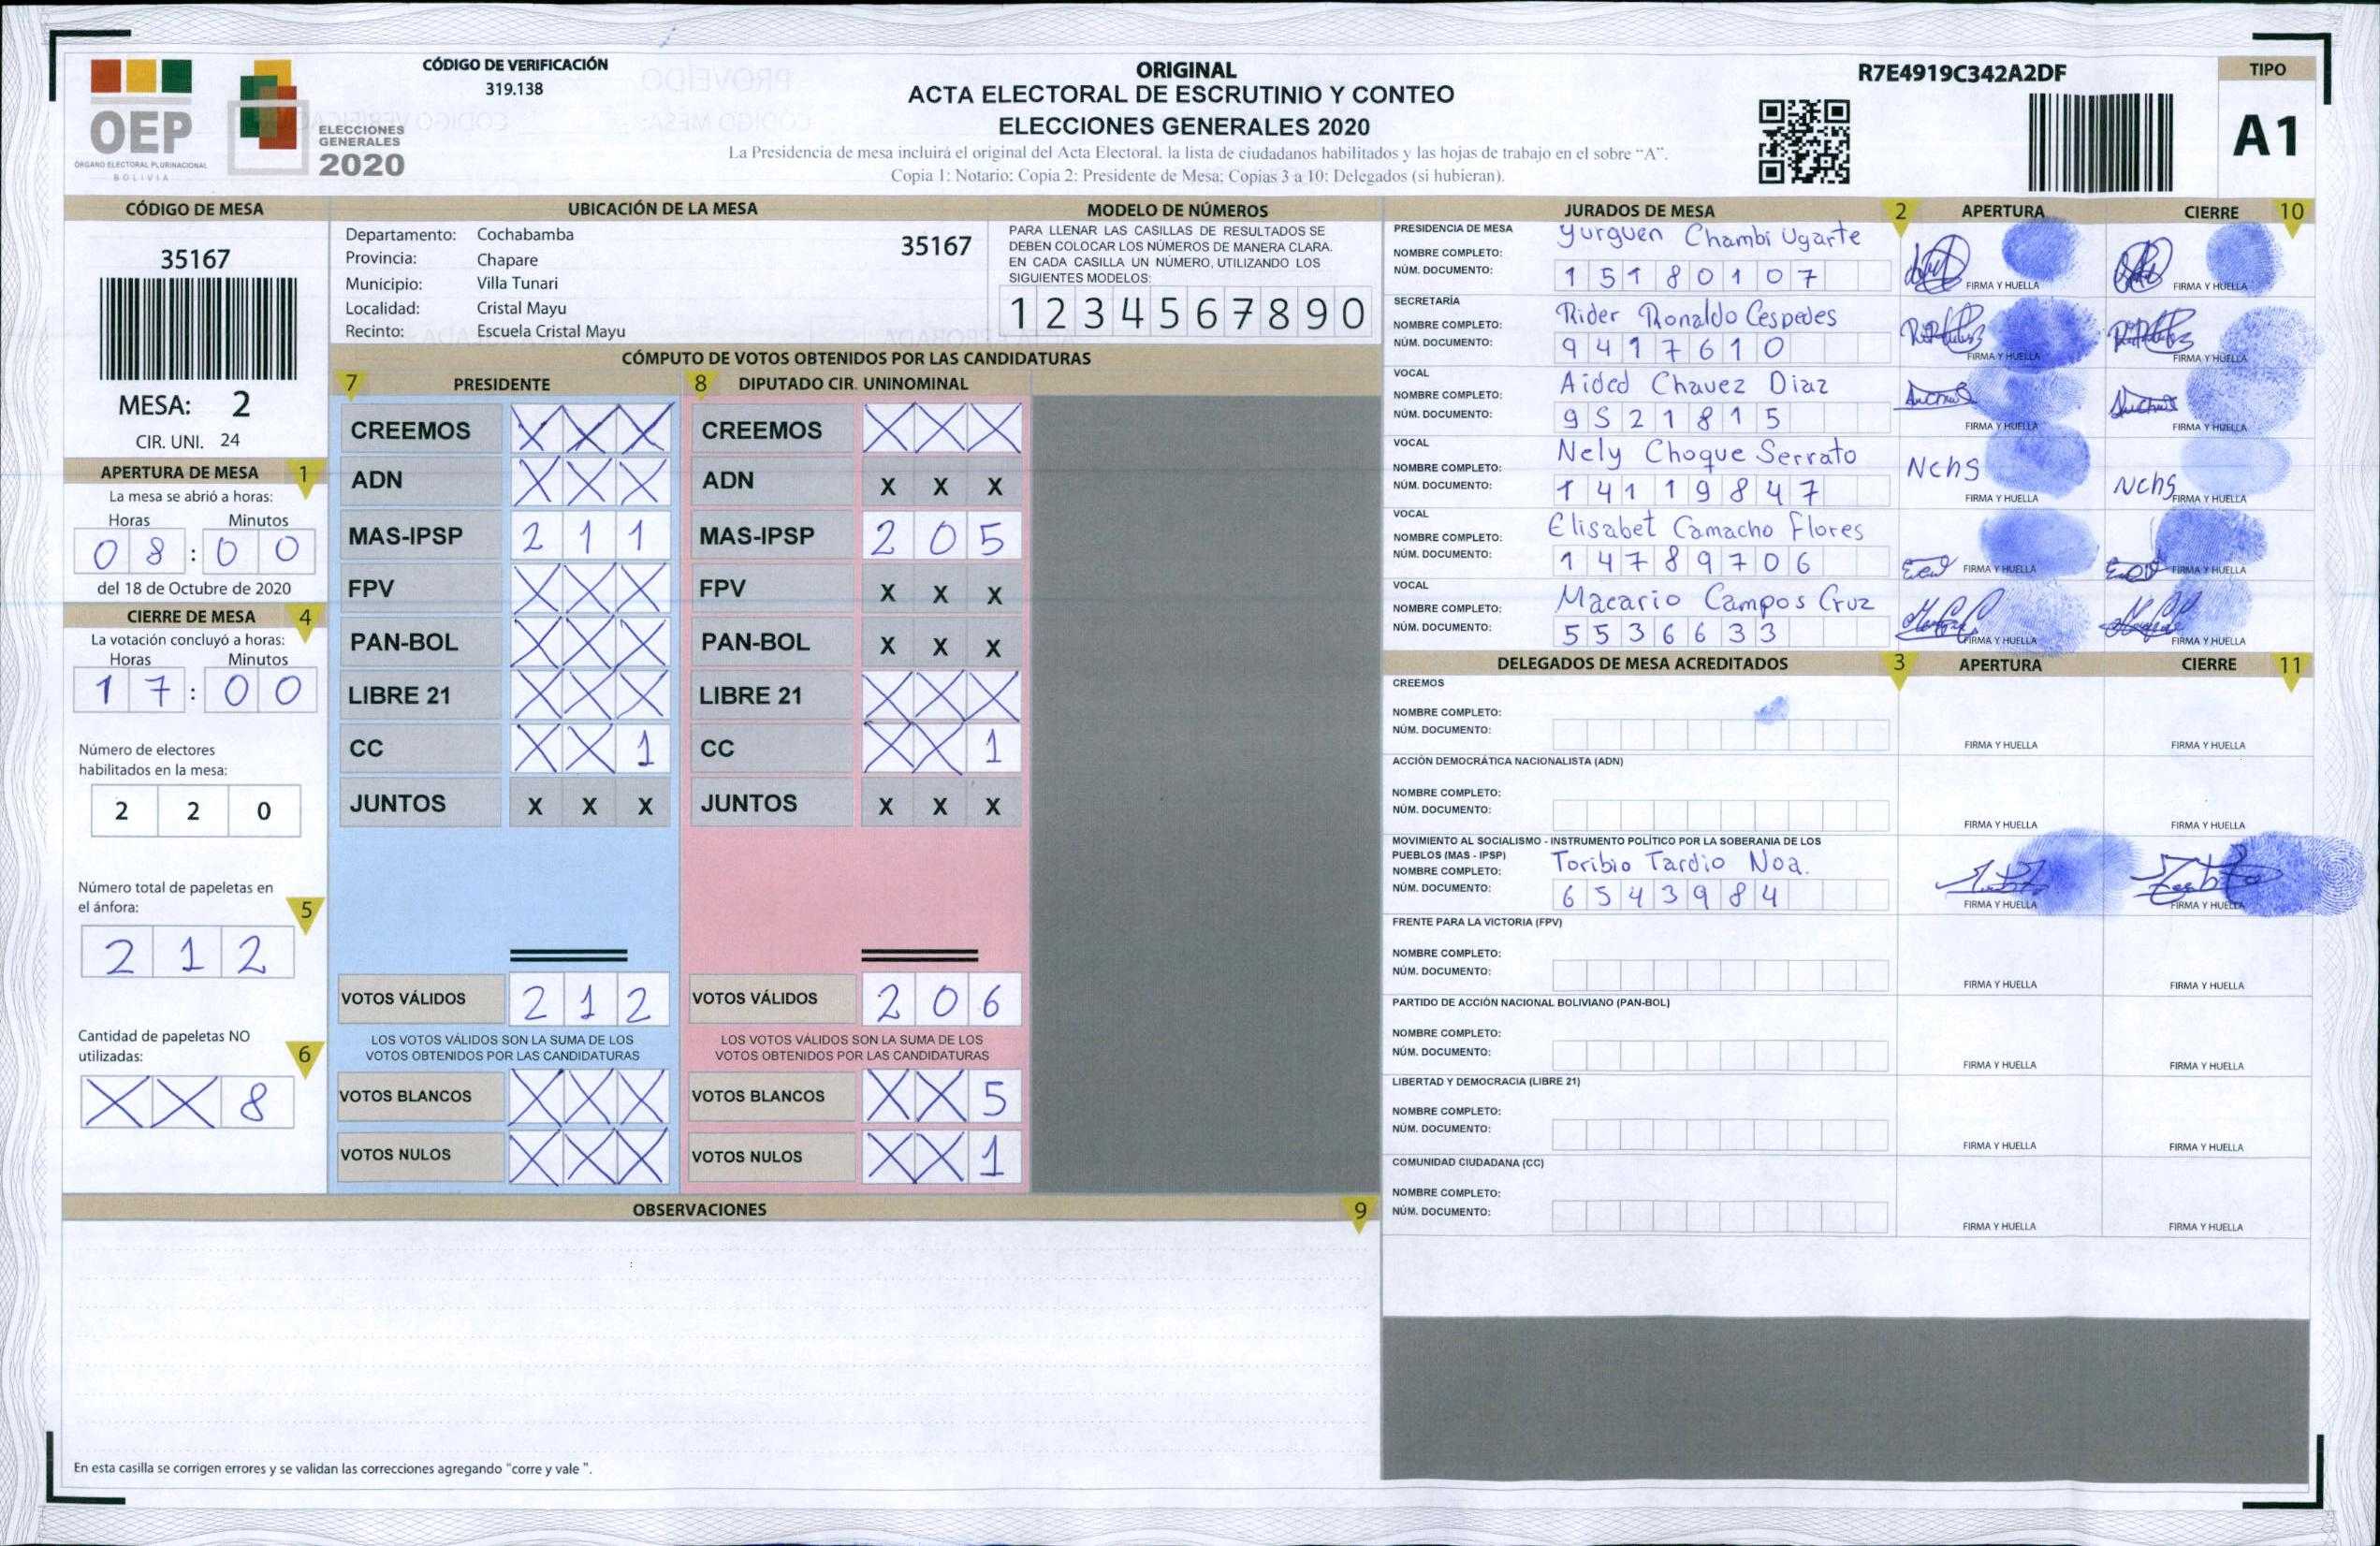 OEP
ÓRGANO ELECTORAL PLURINACIONAL
BOLIVIA
ELECCIONES
GENERALES
2020
CÓDIGO DE VERIFICACIÓN
319.138
ORIGINAL
ACTA ELECTORAL DE ESCRUTINIO Y CONTEO
ELECCIONES GENERALES 2020
La Presidencia de mesa incluirá el original del Acta Electoral, la lista de ciudadanos habilitados y las hojas de trabajo en el sobre "A".
Copia 1: Notario; Copia 2: Presidente de Mesa; Copias 3 a 10: Delegados (si hubieran).
R7E4919C342A2DF
TIPO
A1
CÓDIGO DE MESA
35167
MESA: 2
CIR. UNI. 24
APERTURA DE MESA 1
La mesa se abrió a horas:
Horas Minutos
0 8 : 0 0
del 18 de Octubre de 2020
CIERRE DE MESA 4
La votación concluyó a horas:
Horas Minutos
1 7 : 0 0
Número de electores
habilitados en la mesa:
2 2 0
Número total de papeletas en
el ánfora: 5
2 1 2
Cantidad de papeletas NO
utilizadas: 6
X X 8
UBICACIÓN DE LA MESA
Departamento: Cochabamba 35167
Provincia: Chapare
Municipio: Villa Tunari
Localidad: Cristal Mayu
Recinto: Escuela Cristal Mayu
MODELO DE NÚMEROS
PARA LLENAR LAS CASILLAS DE RESULTADOS SE
DEBEN COLOCAR LOS NÚMEROS DE MANERA CLARA.
EN CADA CASILLA UN NÚMERO, UTILIZANDO LOS
SIGUIENTES MODELOS:
1 2 3 4 5 6 7 8 9 0
CÓMPUTO DE VOTOS OBTENIDOS POR LAS CANDIDATURAS
7 PRESIDENTE 8 DIPUTADO CIR. UNINOMINAL
CREEMOS X X X CREEMOS X X X
ADN X X X ADN X X X
MAS-IPSP 2 1 1 MAS-IPSP 2 0 5
FPV X X X FPV X X X
PAN-BOL X X X PAN-BOL X X X
LIBRE 21 X X X LIBRE 21 X X X
CC X X 1 CC X X 1
JUNTOS X X X JUNTOS X X X
VOTOS VÁLIDOS 2 1 2 VOTOS VÁLIDOS 2 0 6
LOS VOTOS VÁLIDOS SON LA SUMA DE LOS LOS VOTOS VÁLIDOS SON LA SUMA DE LOS
VOTOS OBTENIDOS POR LAS CANDIDATURAS VOTOS OBTENIDOS POR LAS CANDIDATURAS
VOTOS BLANCOS X X X VOTOS BLANCOS X X 5
VOTOS NULOS X X X VOTOS NULOS X X 1
OBSERVACIONES 9
En esta casilla se corrigen errores y se validan las correcciones agregando "corre y vale ".
JURADOS DE MESA 2 APERTURA CIERRE 10
PRESIDENCIA DE MESA
NOMBRE COMPLETO: Yurguen Chambi Ugarte
NÚM. DOCUMENTO: 1 5 1 8 0 1 0 7
FIRMA Y HUELLA FIRMA Y HUELLA
SECRETARÍA
NOMBRE COMPLETO: Rider Ronaldo Cespedes
NÚM. DOCUMENTO: 9 4 1 7 6 1 0
FIRMA Y HUELLA FIRMA Y HUELLA
VOCAL
NOMBRE COMPLETO: Aided Chavez Diaz
NÚM. DOCUMENTO: 9 5 2 1 8 1 5
FIRMA Y HUELLA FIRMA Y HUELLA
VOCAL
NOMBRE COMPLETO: Nely Choque Serrato
NÚM. DOCUMENTO: 1 4 1 1 9 8 4 7
Nchs Nchs
FIRMA Y HUELLA FIRMA Y HUELLA
VOCAL
NOMBRE COMPLETO: Elisabet Camacho Flores
NÚM. DOCUMENTO: 1 4 7 8 9 7 0 6
FIRMA Y HUELLA FIRMA Y HUELLA
VOCAL
NOMBRE COMPLETO: Macario Campos Cruz
NÚM. DOCUMENTO: 5 5 3 6 6 3 3
FIRMA Y HUELLA FIRMA Y HUELLA
DELEGADOS DE MESA ACREDITADOS 3 APERTURA CIERRE 11
CREEMOS
NOMBRE COMPLETO:
NÚM. DOCUMENTO:
FIRMA Y HUELLA FIRMA Y HUELLA
ACCIÓN DEMOCRÁTICA NACIONALISTA (ADN)
NOMBRE COMPLETO:
NÚM. DOCUMENTO:
FIRMA Y HUELLA FIRMA Y HUELLA
MOVIMIENTO AL SOCIALISMO - INSTRUMENTO POLÍTICO POR LA SOBERANIA DE LOS
PUEBLOS (MAS - IPSP)
NOMBRE COMPLETO: Toribio Tardio Noa.
NÚM. DOCUMENTO: 6 5 4 3 9 8 4
FIRMA Y HUELLA FIRMA Y HUELLA
FRENTE PARA LA VICTORIA (FPV)
NOMBRE COMPLETO:
NÚM. DOCUMENTO:
FIRMA Y HUELLA FIRMA Y HUELLA
PARTIDO DE ACCIÓN NACIONAL BOLIVIANO (PAN-BOL)
NOMBRE COMPLETO:
NÚM. DOCUMENTO:
FIRMA Y HUELLA FIRMA Y HUELLA
LIBERTAD Y DEMOCRACIA (LIBRE 21)
NOMBRE COMPLETO:
NÚM. DOCUMENTO:
FIRMA Y HUELLA FIRMA Y HUELLA
COMUNIDAD CIUDADANA (CC)
NOMBRE COMPLETO:
NÚM. DOCUMENTO:
FIRMA Y HUELLA FIRMA Y HUELLA